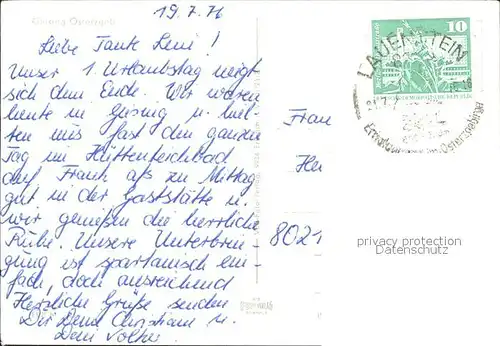 19.7.76
Geising Osterzgeb.
Liebe Tante Leni!
Unser 1. Urlaubstag neigt
sich dem Ende. Wir waren
heute in Geising u. hiel-
ten uns fast den ganzen
Tag im Hüttenteichbad
auf. Frank aß zu Mittag
gut in der Gaststätte u.
wir genießen die herrliche
Ruhe. Unsere Unterbrin-
gung ist spartanisch ein-
fach, doch ausreichend
Herzliche Grüße senden
Dir Deine Christiane u.
Dein Volker
10
LAUENSTEIN
Frau
8021
privacy protection
Datenschutz